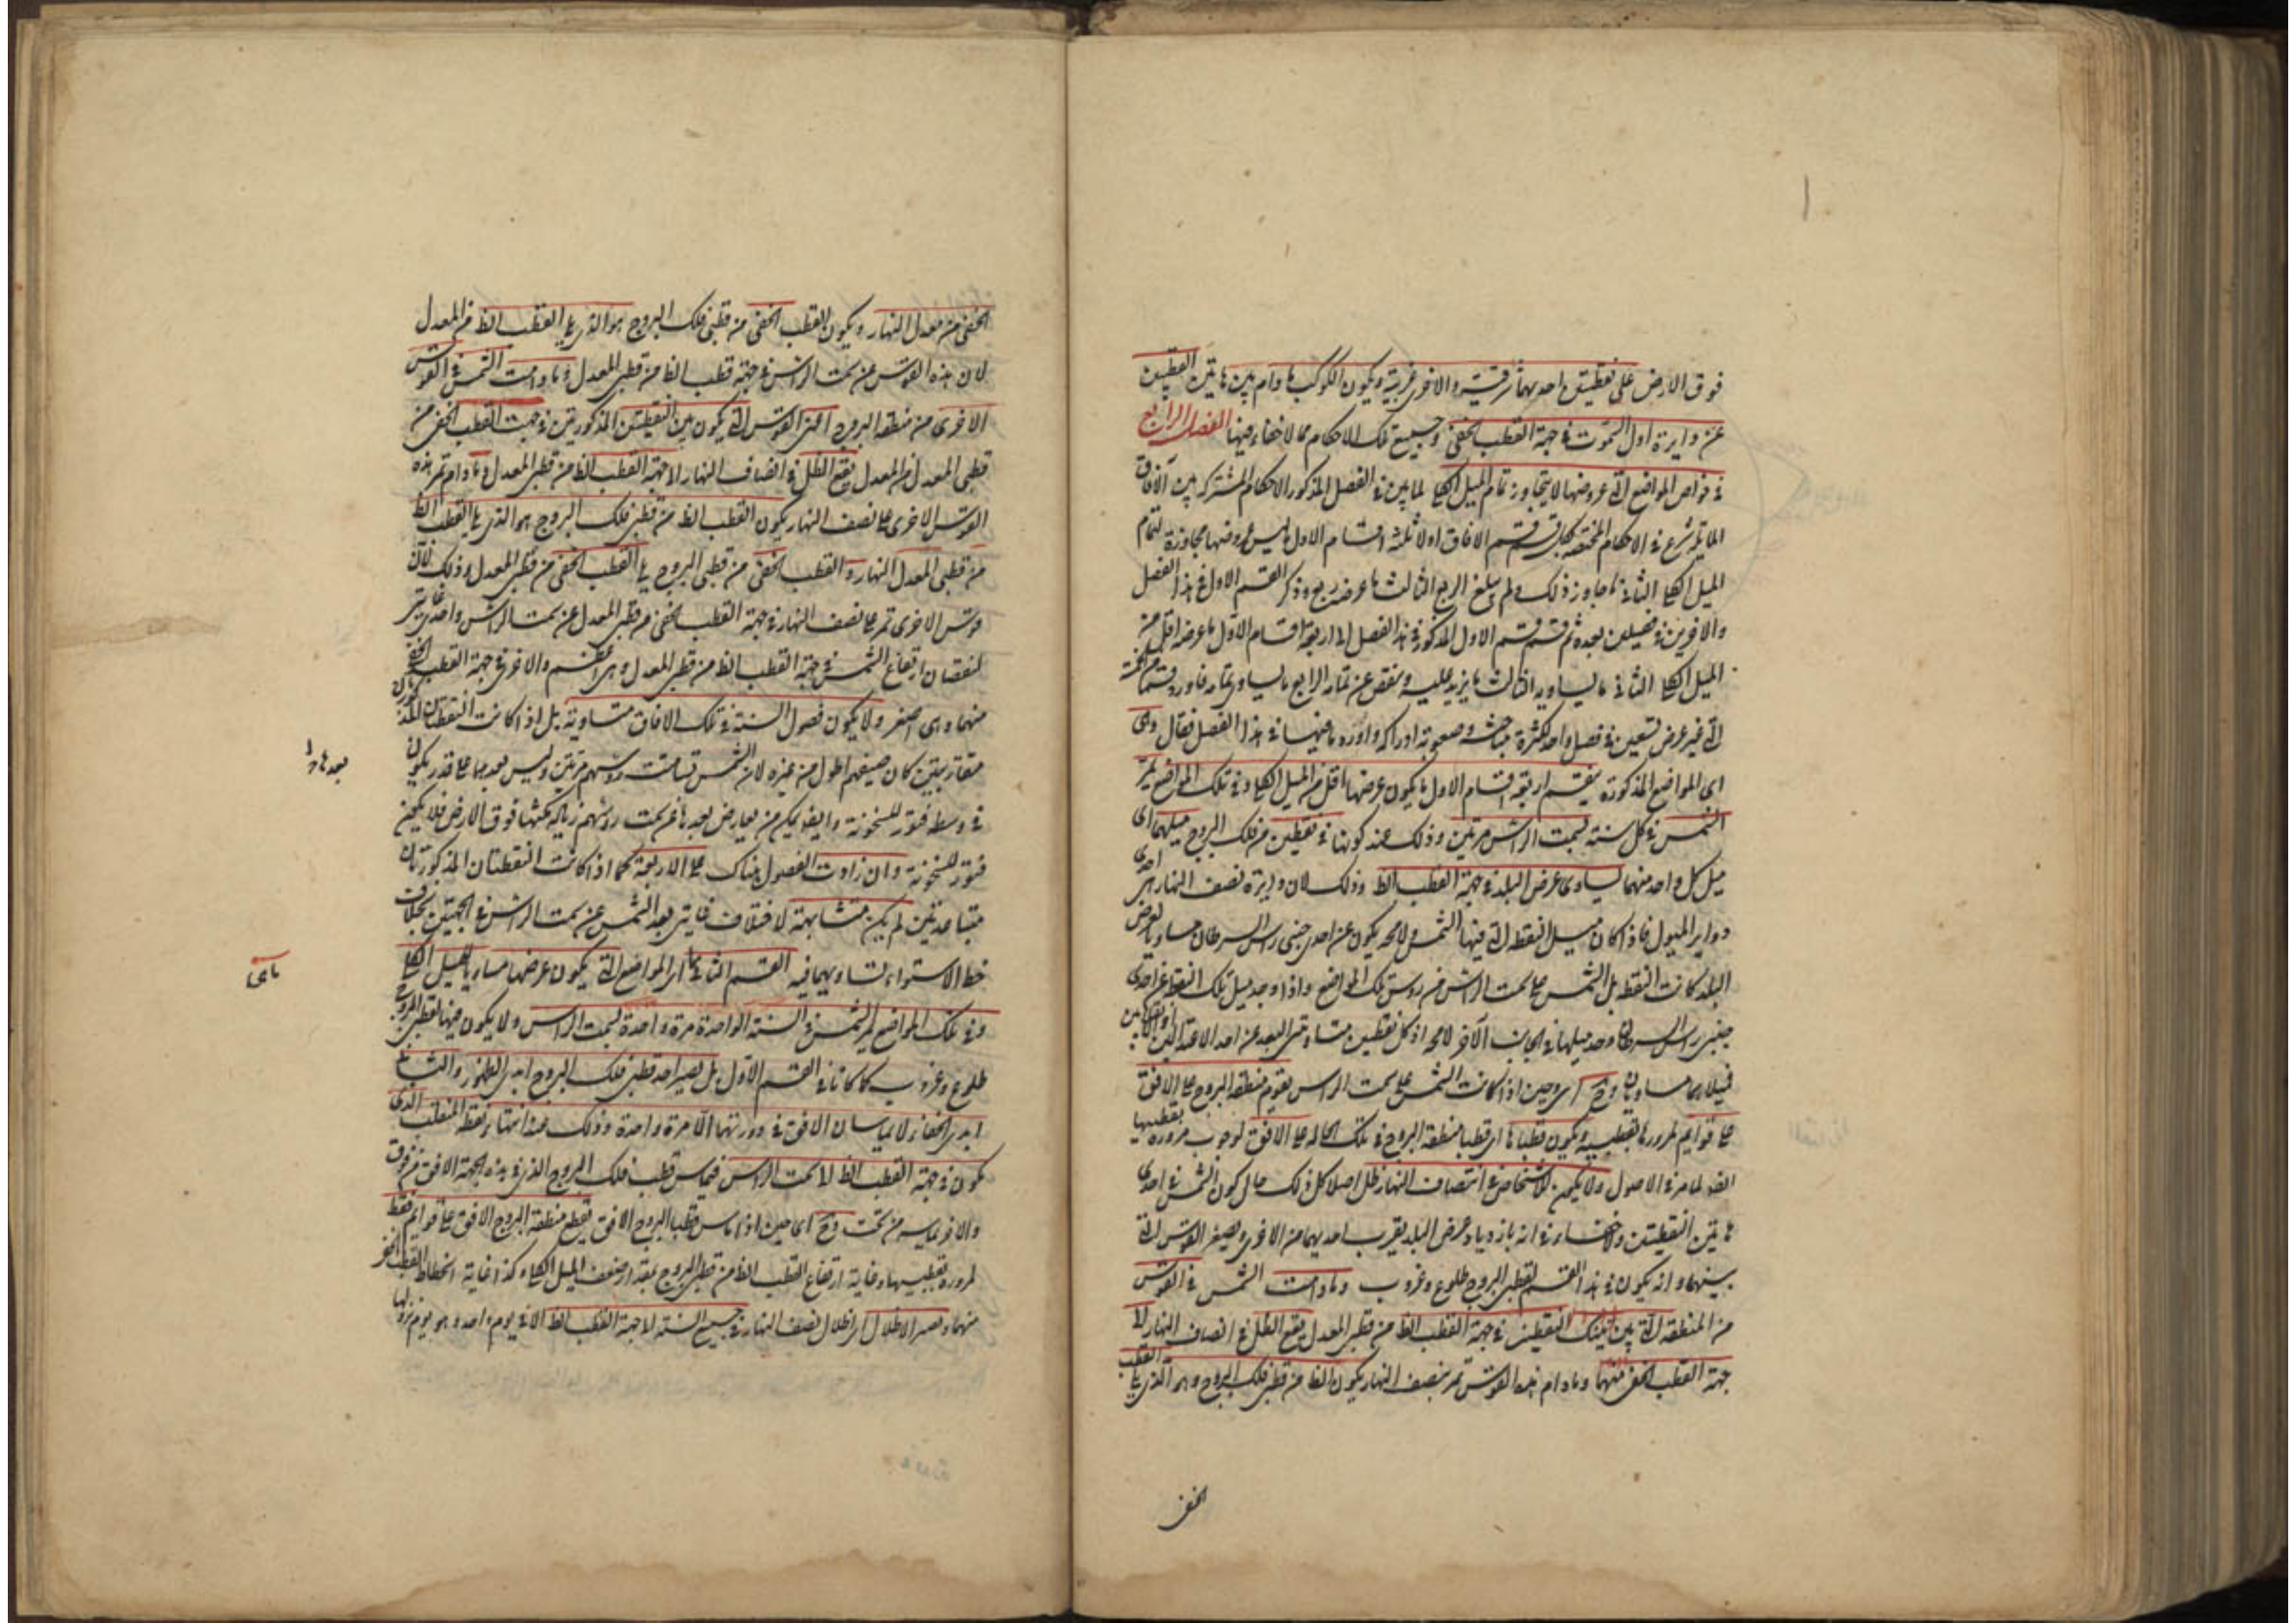 فوق الارض على نقطتين احديهما شرقية والاخرى غربية ويكون الكوكب ما دام بين هاتين النقطتين
عن دايرة اول السموت في جهة القطب الخفى وجميع تلك الاحكام مما لا خفاء فيها الفصل الرابع
في خواص المواضع التى عروضها لا يتجاوز تمام الميل الكلى لما بين في الفصل المذكور الاحكام المشتركة بين آفاق
المايلة شرع في الاحكام المختصة بكل قسم قسم الافاق اولا ثلثة اقسام الاول ليس عروضها مجاوزة لتمام
الميل الكلى الثانى ما جاوز ذلك ولم يبلغ الربع الثالث ما عرضه ربع وذكر القسم الاول في هذا الفصل
والاخرين في فصلين بعده ثم قسم قسم الاول المذكور في هذا الفصل الى اربعة اقسام الاول ما عرضه اقل من
الميل الكلى الثانى ما يساويه الثالث ما يزيد عليه وينقص عن تمامه الرابع ما يساوى تمامه فاورد
التى غير عرض تسعين في فصل واحد لكثرة مباحثه وصعوبة ادراكه واورد ما فيها في هذا الفصل فقال وهى
اى المواضع المذكورة ينقسم اربعة اقسام الاول ما يكون عرضها اقل من الميل الكلى وفي تلك المواضع يمر
الشمس في كل سنة بسمت الراس مرتين وذلك عند كونها في نقطتين من فلك البروج ميلهما اى
ميل كل واحد منهما يساوى عرض البلد في جهة القطب الظ وذلك لان دايرة نصف النهار هى احدى
دواير الميول فاذا كان ميل النقطة التى فيها الشمس ولا محه يكون عن احدى جنبى راس السرطان مساويا لعرض
البلد كانت النقطة بل الشمس على سمت الراس من روس تلك المواضع واذا وجد ميل تلك النقطة عن احدى
جنبى راس السرطان وجد ميلها في الجانب الآخر لا محه اذ كل نقطتين متساويتى البعد عن احد الاعتدالين
فميلاهما مساويان وح اى وحين اذا كانت الشمس على سمت الراس يقوم منطقة البروج على الافق
على قوايم لمرورها بقطبيه ويكون قطباها اى قطبا منطقة البروج في تلك الحالة على الافق لوجوب مروره بقطبيها
ايضا لما مر في الاصول ولا يكون للاشخاص في انتصاف النهار ظل اصلا كل ذلك حال كون الشمس في احدى
هاتين النقطتين ولا خفاء في انه بازدياد عرض البلد يقرب احديهما من الاخرى ويصغر القوس التى
بينهما وانه يكون في هذا القسم لقطبى البروج طلوع وغروب وما دامت الشمس في القوس
من المنطقة التى بين تينك النقطتين في جهة القطب الظ من قطبى المعدل يقع الظل في انصاف النهار الى
جهة القطب الخفى منهما وما دام هذه القوس تمر بنصف النهار يكون الظ من قطبى فلك البروج وهو الذى يلى القطب
الخفى
الخفى من معدل النهار ويكون القطب الخفى من قطبى فلك البروج هو الذى يلى القطب الظ من المعدل
لان هذه القوس عن سمت الراس في جهة قطب الظ من قطبى المعدل وما دامت الشمس في القوس
الاخرى من منطقة البروج اعنى القوس التى يكون بين النقطتين المذكورتين في جهت القطب الخفى من
قطبى المعدل يقع الظل في انصاف النهار الى جهة القطب الظ من قطبى المعدل وما دام تمر هذه
القوس الاخرى على نصف النهار يكون القطب الظ من قطبى فلك البروج هو الذى يلى القطب الظ
من قطبى المعدل النهار والقطب الخفى من قطبى البروج يلى القطب الخفى من قطبى المعدل وذلك لان
قوس الاخرى تمر على نصف النهار في جهة القطب الخفى من قطبى المعدل عن سمت الراس واحدى غايتى
لنقصان ارتفاع الشمس في جهة القطب الظ من قطبى المعدل وهى اعظم والاخرى في جهة القطب الخفى
منهما وهى اصغر ولا يكون فصول السنة في تلك الافاق متساوية بل اذا كانت النقطتان المذكورتان
متقاربتين كان صيفهم اطول من غيره لان الشمس تسامت روسهم مرتين وليس بعدهما على قدر يكون
في وسطه فتور للسخونة وايضا يمكن من يعارض بعدها عن سمت روسهم زيادة مكثها فوق الارض فلا يمكن
فتور للسخونة وان زادت الفصول هناك على الاربعة كما اذا كانت النقطتان المذكورتان
متباعدتين لم يكن متشابهة لاختلاف غايتى بعد الشمس عن سمت الراس في الجهتين بخلاف
خط الاستواء لتساويهما فيه القسم الثانى المواضع التى يكون عرضها مساويا للميل الكلى
وفي تلك المواضع يمر الشمس في السنة الواحدة مرة واحدة بسمت الراس ولا يكون فيها لقطبى البروج
طلوع وغروب كما كانا في القسم الاول بل يصير احد قطبى فلك البروج ابدى الظهور والثانى
ابدى الخفاء لا يماسان الافق في دورتهما الا مرة واحدة وذلك عند انتهاء نقطة المنقلب الذى
يكون في جهة القطب الظ الى سمت الراس فيماس قطب فلك البروج الذى في هذه الجهة الافق من فوق
والاخر يماسه من تحت وح اى حين اذا ماس قطبا البروج الافق يقطع منطقة البروج الافق على قوايم فقط
لمروره بقطبيها وغاية ارتفاع القطب الظ من قطبى البروج بمقدار ضعف الميل الكلى وكذا غاية انحطاط القطب الخفى
منهما ويصير الاظلال اى ظلال نصف النهار في جميع السنة الى جهة القطب الظ الا في يوم واحد وهو يوم نزولها